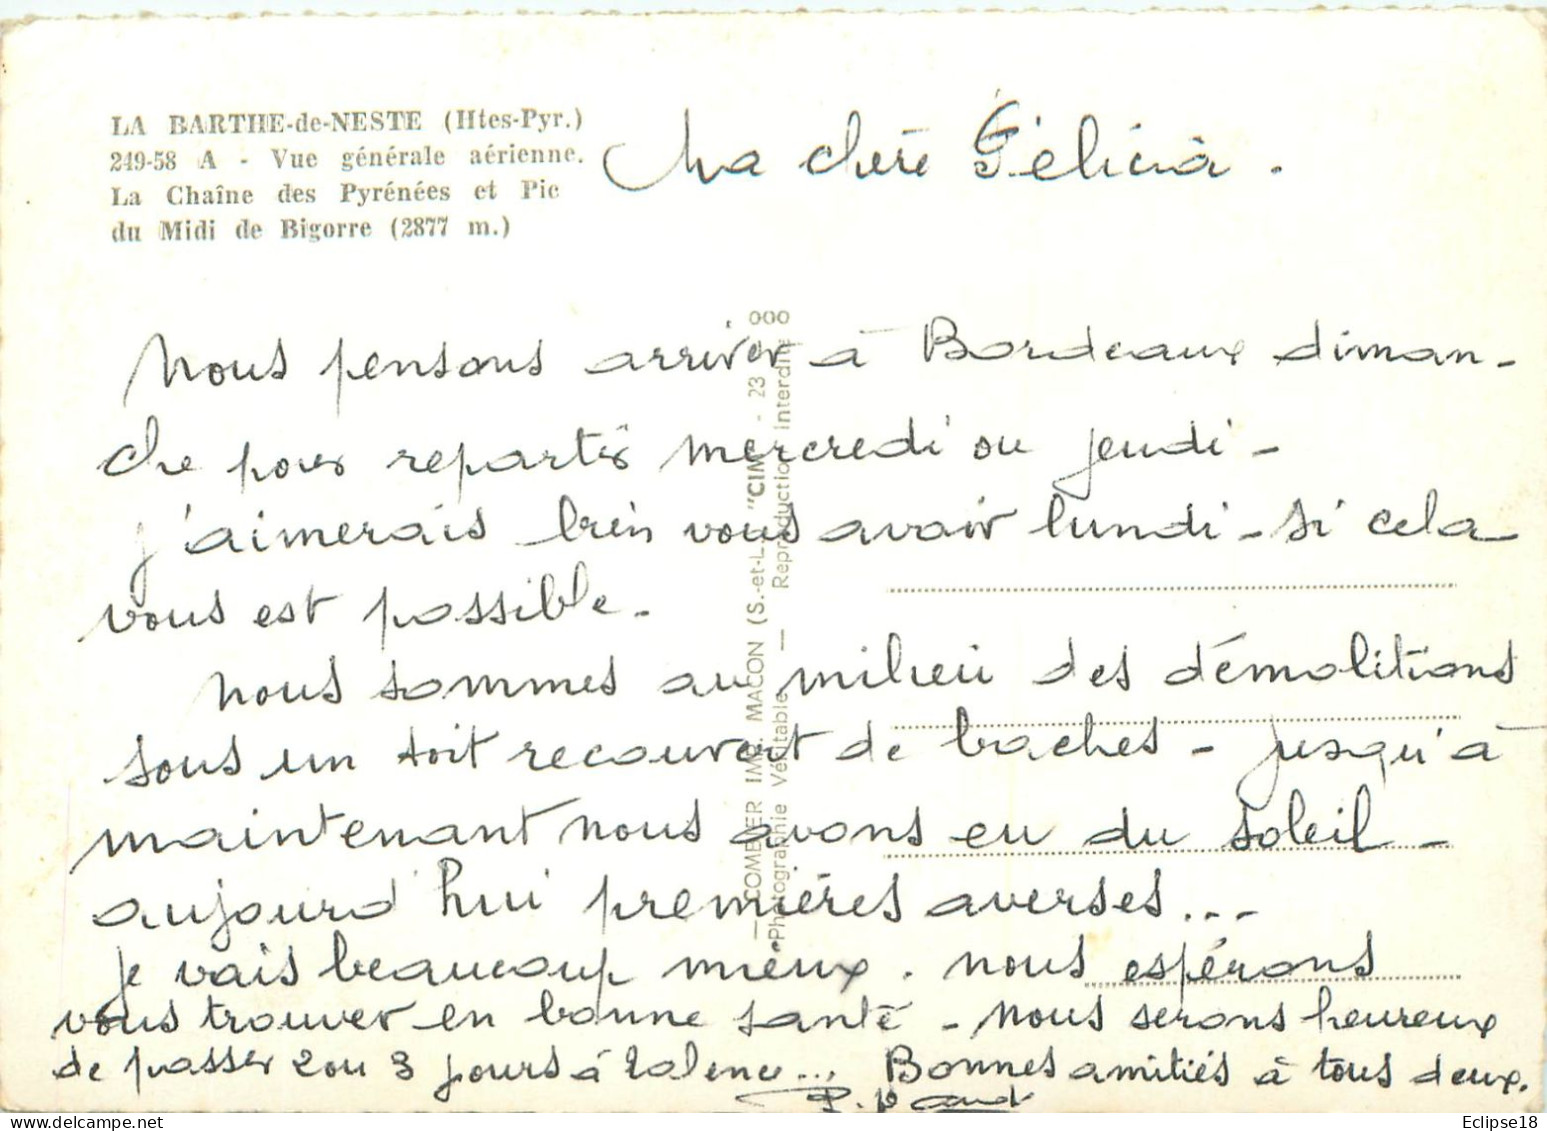 LA BARTHE-de-NESTE (Htes-Pyr.)
249-58 A - Vue générale aérienne.
La Chaîne des Pyrénées et Pic
du Midi de Bigorre (2877 m.)
Ma chère Félicia.
Nous pensons arriver à Bordeaux diman-
che pour repartir mercredi ou jeudi -
j'aimerais bien vous avoir lundi - si cela
vous est possible -
nous sommes au milieu des démolitions
sous un toit recouvert de baches - jusqu'à
maintenant nous avons eu du soleil -
aujourd'hui premières averses...
je vais beaucoup mieux. nous espérons
vous trouver en bonne santé - nous serons heureux
de passer 2 ou 3 jours à Talence... Bonnes amitiés à tous deux.
— COMBIER IMP. MACON (S.-et-L.) "CIM" - 23
Photographie Véritable — Reproduction interdite
Eclipse18